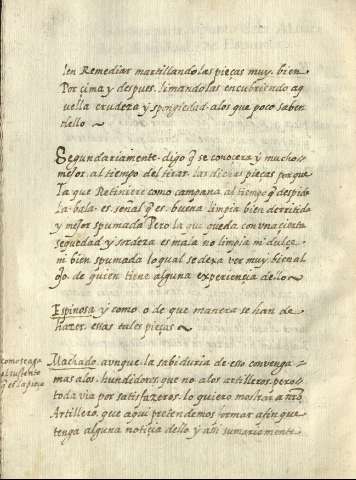 len Remediar martillando las pieças muy bien
Por çima y despues limandolas encubriendo aq
uella crudeza y spongiedad alos que poco saben
dello
Segundariamente digo q̃ se conoçera ÿ mucho
mejor al tiempo del tirar las dichas pieças porque
la que Retiniere como campana al tiempo q̃ despide
La bala es señal q̃ es buena limpia bien derritida
y mejor spumada Pero la que queda con vna çierta
seguedad y sordeza es mala no limpia ni dulçe
ni bien spumada lo qual se dexa ver muy bien al
ojo de quien tiene alguna experiencia dello
Espinosa y como o de que manera se han de
hazer essas tales pieças
como tenga
el
q̃ es la pieça
Machado aunque la sabiduria de esso convenga
mas alos hundidores que no alos artilleros pero
toda via por satisfazeros lo quiero mostrar a nr̃o
Artillero que aqui pretendemos formar afin que
tenga alguna notiçia dello y assi sumariamente